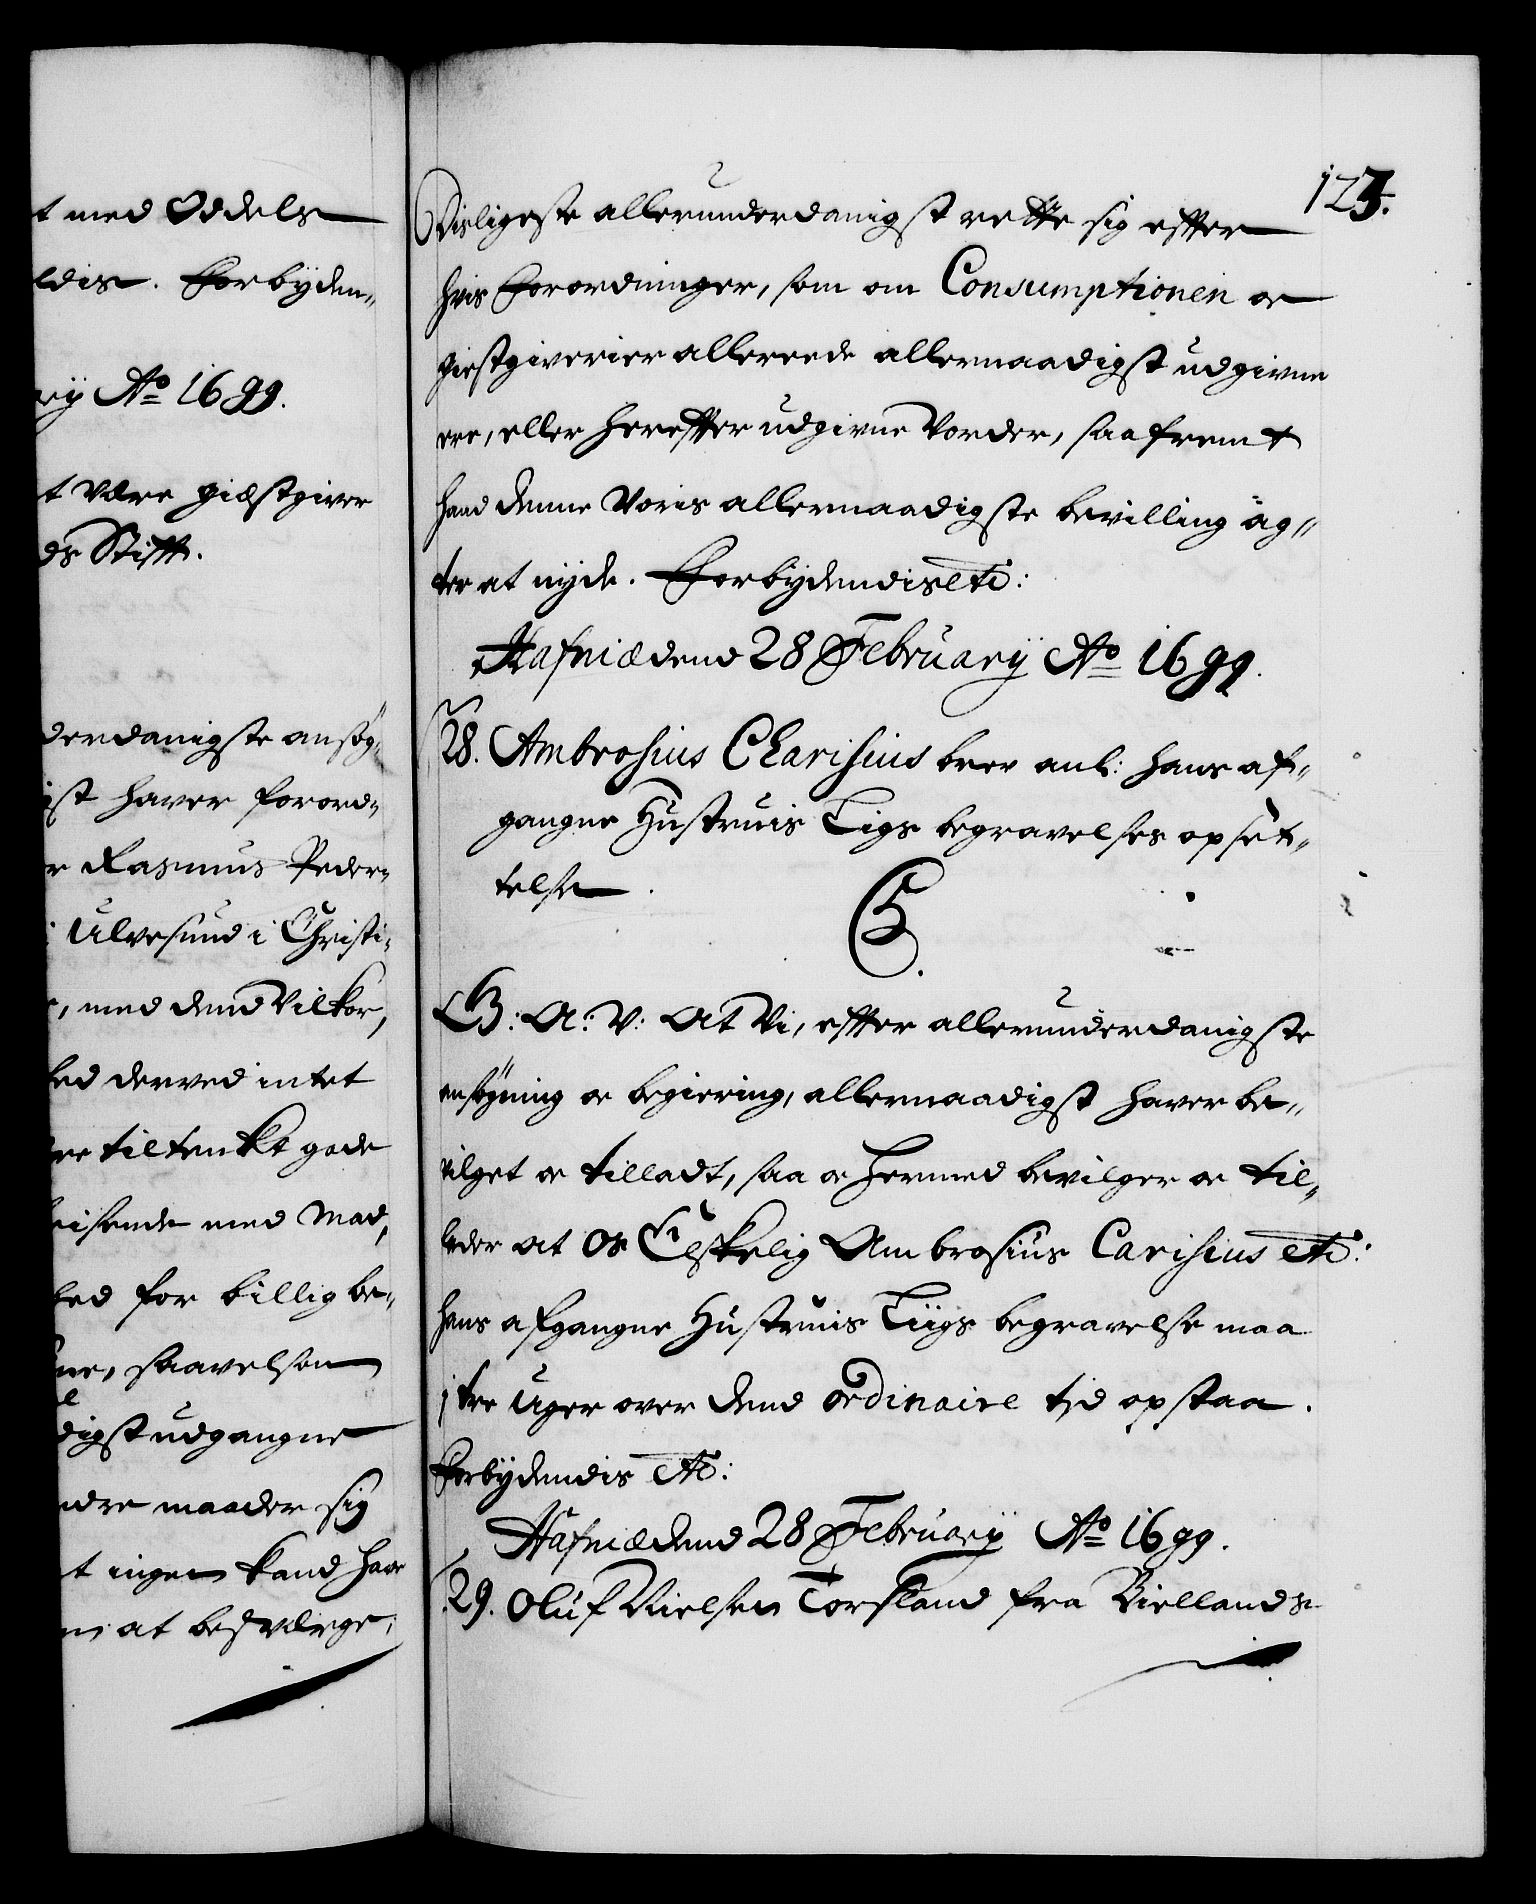 t med Odels
ldis. Forbÿden„
rÿ Ao 1699.
t være giæstgiver
ds Stifft.
derdanigste ansøg„
ist haver forord„
r Rasmus Peder„
i Ulvesund i Christi„
, med dend Vilkor,
ted derved intet
tiltenkt gode
eisende med Mad,
ted for billig be„
ne, saavelsom
digst udgangne
ndre maader sig
t ingen kand have
at besværge;
123.
Disligeste allerunderdanigst rette sig effter
hvis Forordninger, som om Consumptionen oc
giestgiverier allereede allernaadigst udgivne
ere, eller hereffter udgivne Vorder, saafremt
hand denne Voris allernaadigste bevilling ag„
ter at nÿde. Forbÿdendis etc:
Hafniæ dend 28 Februarÿ Ao 1699.
28. Ambrosius Charisius brev anl: hans af„
gangne Hustruis Ligs begravelses opset„
telse.
C5.
G: A: V: At Vi, effter allerunderdanigste
ansøgning oc begiering, allernaadigst haver be„
vilget oc tilladt, saa oc hermed bevilger oc til„
lader at Os Elskelig Ambrosius Carisius etc:
hans afgangne Hustruis Liigs begravelse maa
j tre Uger over dend ordinaire tjd opstaa.
Forbÿdendis etc:
Hafniæ dend 28 Februarÿ Ao 1699.
29. Oluf Nielsen Torsland fra Biellands